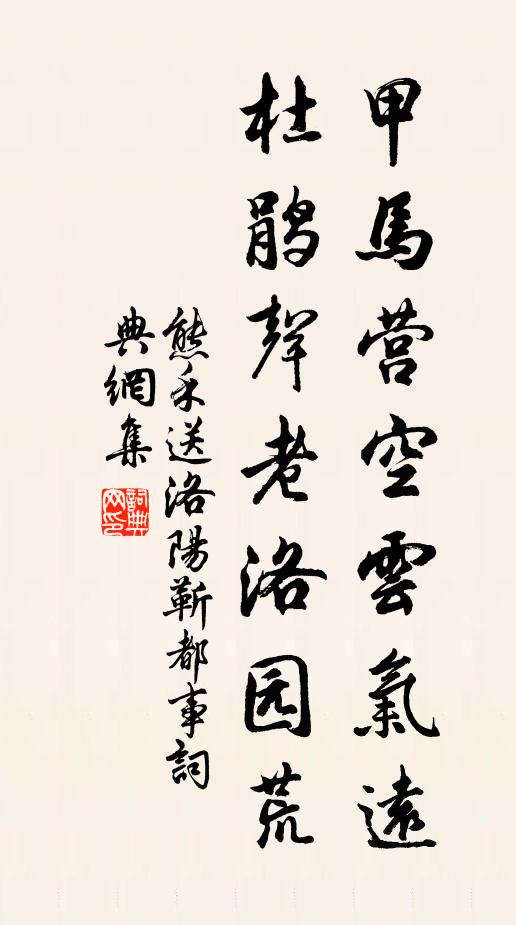 甲馬营空雲氣遠
杜鹃聲老洛园荒
熊禾送洛陽靳都事詞
典網集
詞典网印